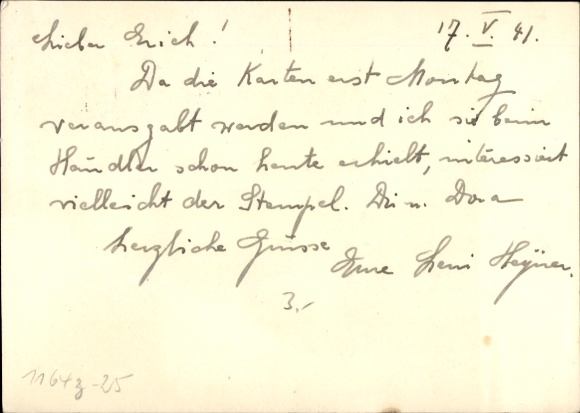 Lieber Erich! 17. V. 41.
Da die Karten erst Montag
verausgabt werden und ich sie beim
Händler schon heute erhielt, interessiert
vielleicht der Stempel. Dir u. Dora
herzliche Grüsse
Eure Leni
3.-
11643-25